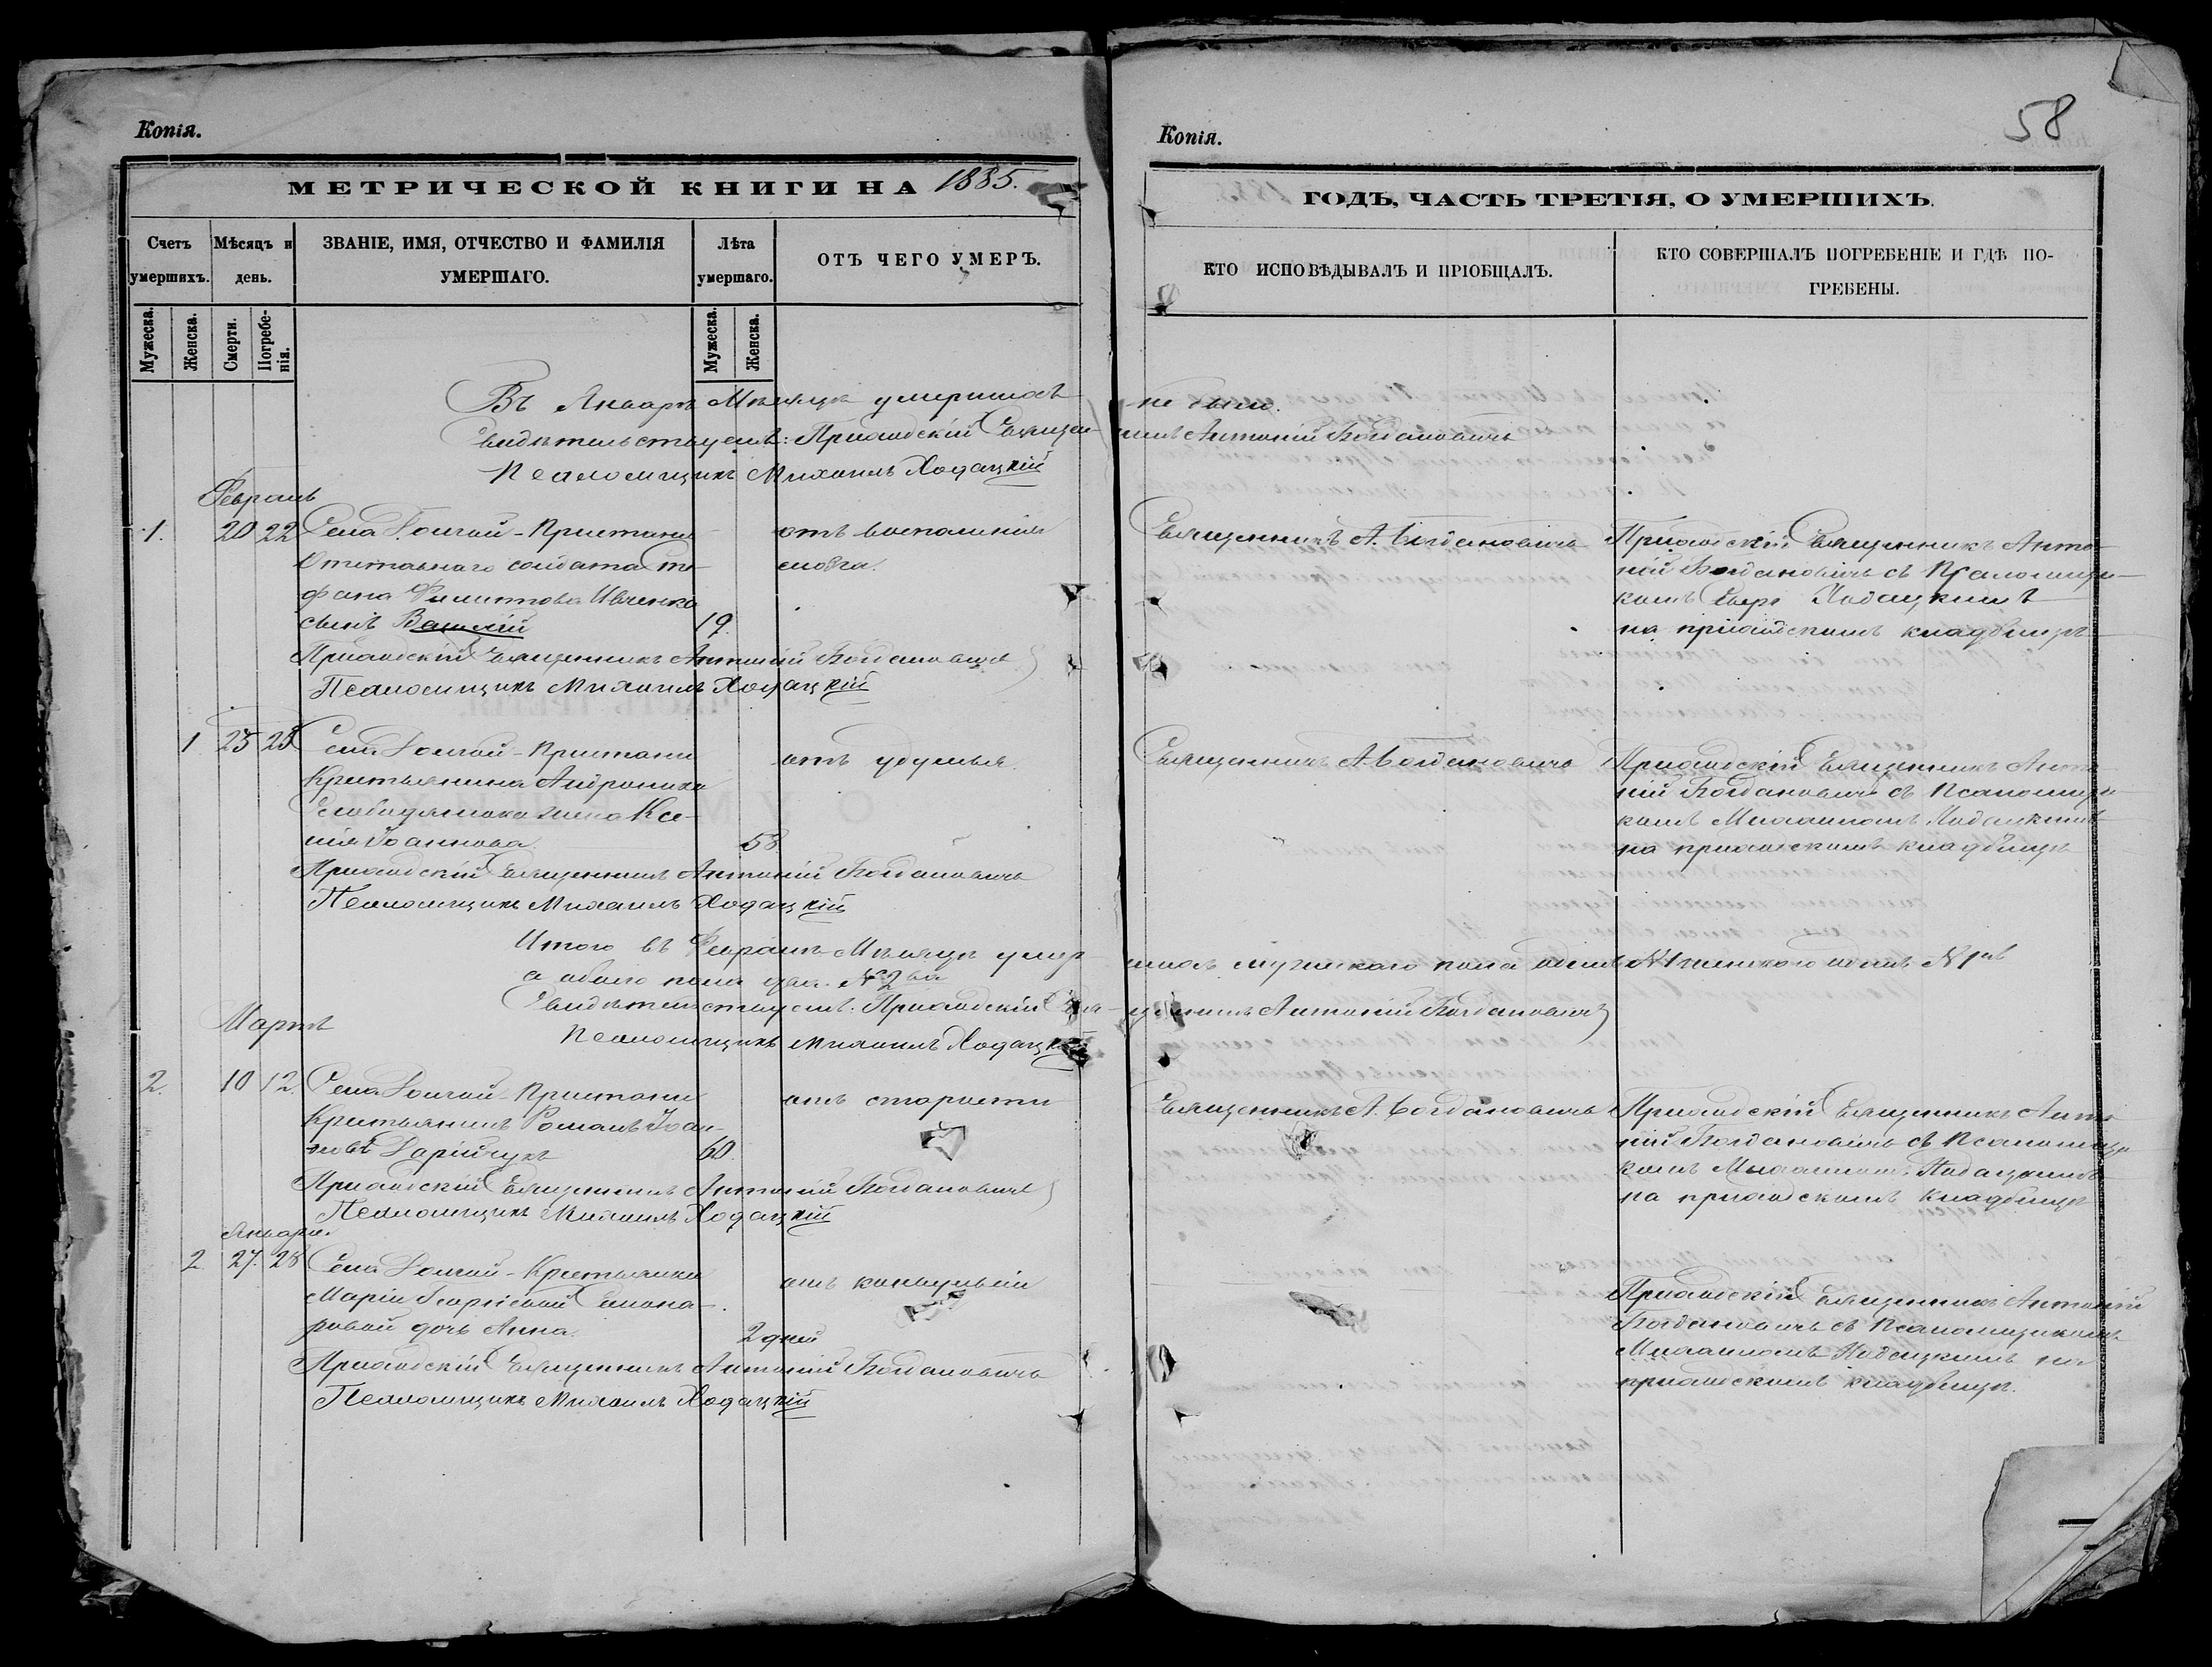 Копія.
МЕТРИЧЕСКОЙ КНИГИ НА 1885.
Счетъ умершихъ.
Мѣсяцъ и день.
ЗВАНІЕ, ИМЯ, ОТЧЕСТВО И ФАМИЛІЯ УМЕРШАГО.
Лѣта умершаго.
ОТЪ ЧЕГО УМЕРЪ.
Мужеска.
Женска.
Смерти.
Погребенія.
Мужеска.
Женска.
Копія.
58
ГОДЪ, ЧАСТЬ ТРЕТІЯ, О УМЕРШИХЪ.
КТО ИСПОВѢДЫВАЛЪ И ПРІОБЩАЛЪ.
КТО СОВЕРШАЛЪ ПОГРЕБЕНІЕ И ГДѢ ПО-
ГРЕБЕНЫ.
Въ Январѣ Мѣсяцѣ умершихъ не было.
Свидѣтельствуемъ: Приходскій Священникъ Антоній Богдановичъ
Псаломщикъ Михаилъ Ходацкій
Февраль
1. 20 22 Села Голой-Пристани
Отставного солдата Сте-
фана Филиппова Ивченка
сынъ Василій 19.
отъ воспаленія
мозга.
Священникъ А. Богдановичъ
Приходскій Священникъ Анто-
ній Богдановичъ съ Псаломщи-
комъ Ходацкимъ
на приходскомъ кладбищѣ
Приходскій Священникъ Антоній Богдановичъ
Псаломщикъ Михаилъ Ходацкій
1 23 25 Села Голой-Пристани
Крестьянина Андроника
жена Ксе-
нія Іоаннова 58.
отъ удушья.
Священникъ А. Богдановичъ
Приходскій Священникъ Анто-
ній Богдановичъ съ Псаломщи-
комъ Михаиломъ Ходацкимъ
на приходскомъ кладбищѣ
Приходскій Священникъ Антоній Богдановичъ
Псаломщикъ Михаилъ Ходацкій
Итого въ Февралѣ Мѣсяцѣ умершихъ мужескаго пола одинъ №1 женскаго одинъ №1нъ
а обоего пола два №2ва
Свидѣтельствуемъ: Приходскій Священникъ Антоній Богдановичъ
Псаломщикъ Михаилъ Ходацкій
Мартъ
2. 10 12 Села Голой-Пристани
Крестьянинъ Романъ Іоан-
новъ 60.
отъ старости
Священникъ А. Богдановичъ
Приходскій Священникъ Анто-
ній Богдановичъ съ Псаломщи-
комъ Михаиломъ Ходацкимъ
на приходскомъ кладбищѣ
Приходскій Священникъ Антоній Богдановичъ
Псаломщикъ Михаилъ Ходацкій
Января.
2 27. 28 Села Голой-Крестьянки
Маріи Георгіевой
дочь Анна. 2 дней
отъ конвульсій
Приходскій Священникъ Антоній
Богдановичъ съ Псаломщикомъ
Михаиломъ Ходацкимъ на
приходскомъ кладбищѣ.
Приходскій Священникъ Антоній Богдановичъ
Псаломщикъ Михаилъ Ходацкій